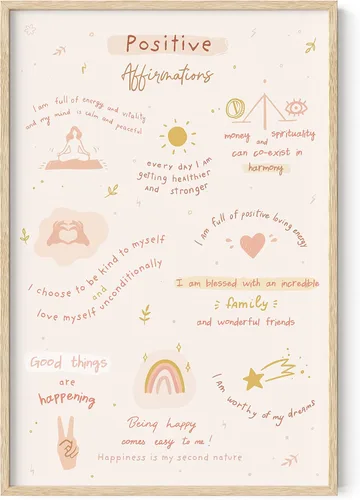 Positive
Affirmations
I am full of energy and vitality
and my mind is calm and peaceful
every day I am
getting healthier
and stronger
money and spirituality
can co-exist in
harmony
I choose to be kind to myself
and
love myself unconditionally
I am full of positive loving energy
I am blessed with an incredible
family
and wonderful friends
Good things
are
happening
Being happy
comes easy to me!
Happiness is my second nature
I am worthy of my dreams